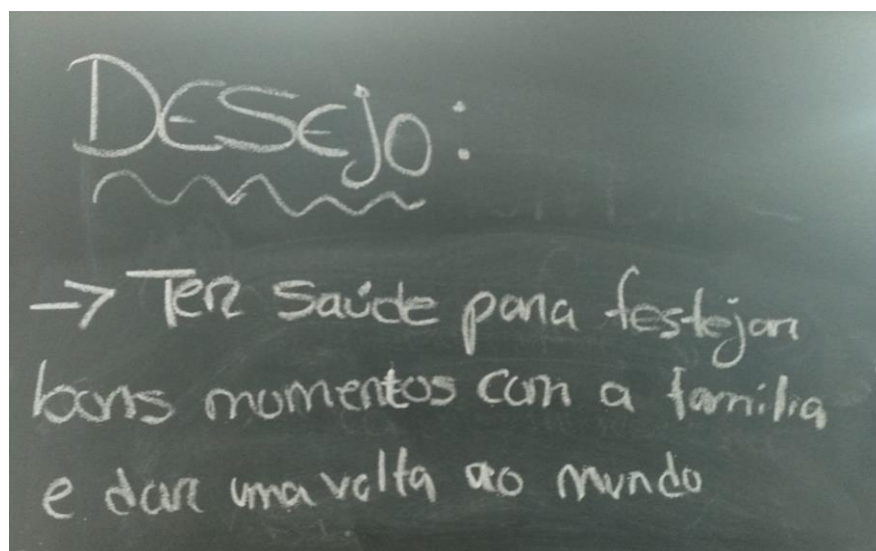 DESEjO:
-> Ter saúde para festejar
bons momentos com a família
e dar uma volta ao mundo